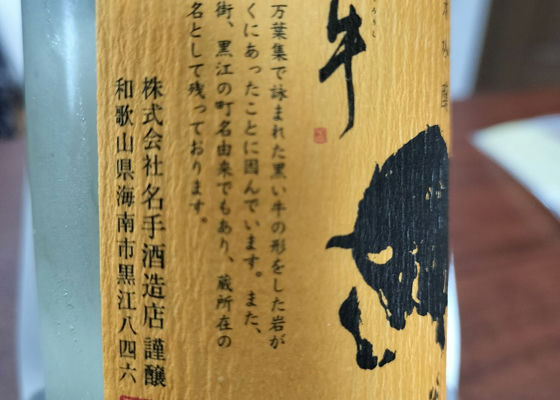 牛
万葉集で詠まれた黒い牛の形をした岩が
くにあったことに因んでいます。また、
街、黒江の町名由来でもあり、蔵所在の
名として残っております。
株式会社名手酒造店 謹醸
和歌山県海南市黒江八四六